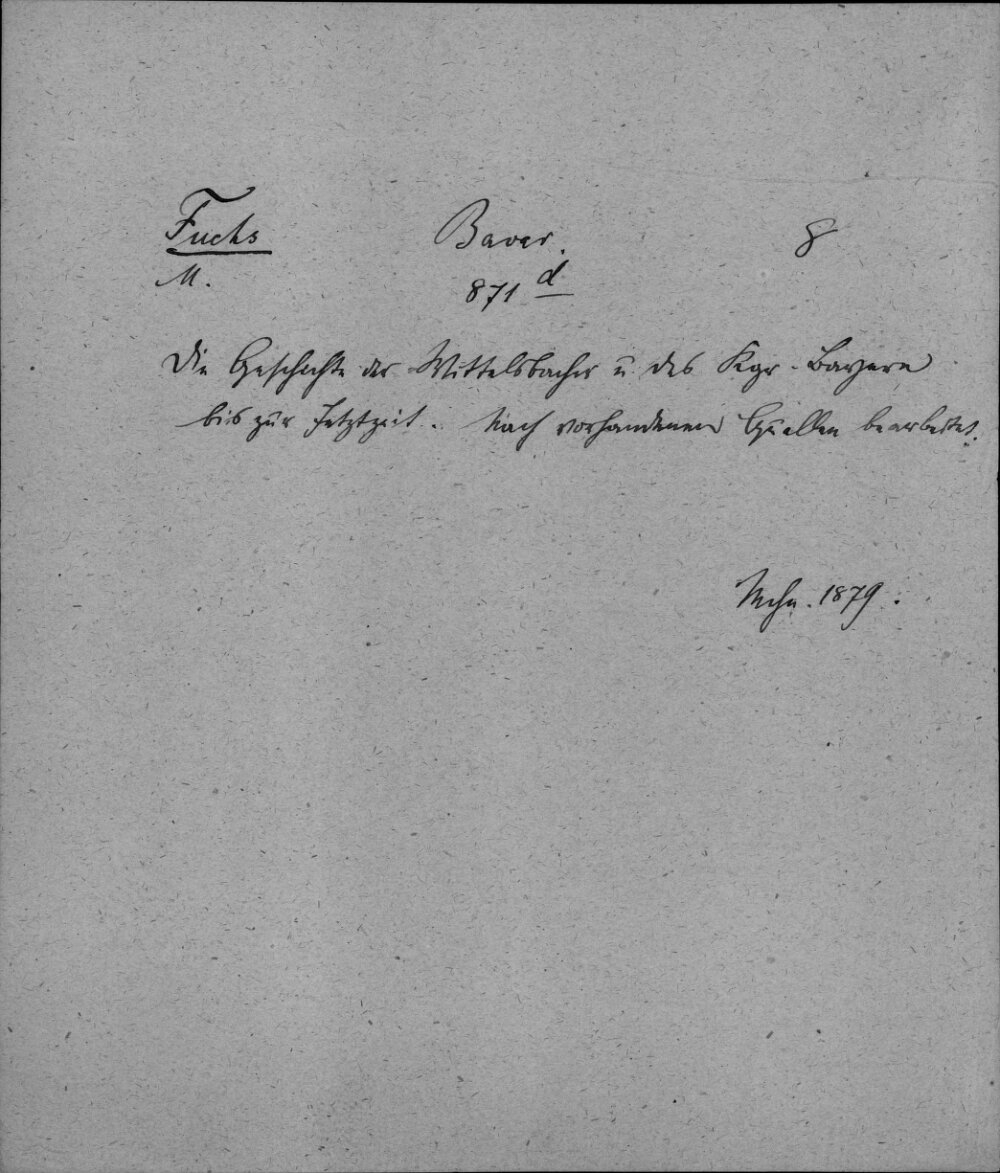 Fuchs Bavar. 8
M. 871 d
Die Geschichte der Wittelsbacher u des Kgr. Bayern
bis zur Jetztzeit. Nach vorhandenen Quellen bearbeitet.
Mchn. 1879.